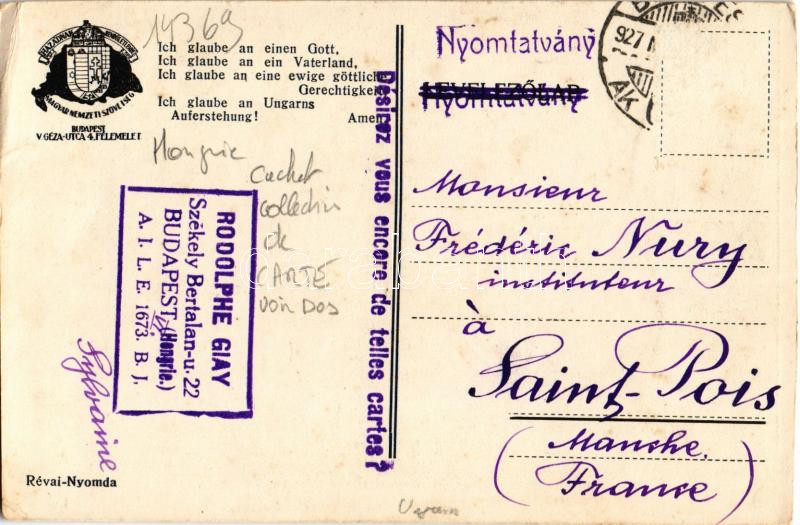 14369
HAZÁDNAK RENDÜLETLENÜL
MAGYAR NEMZETI SZÖVETSÉG
BUDAPEST
V. GÉZA-UTCA 4. FÉLEMELET
Ich glaube an einen Gott,
Ich glaube an ein Vaterland,
Ich glaube an eine ewige göttliche
Gerechtigkeit
Ich glaube an Ungarns
Auferstehung! Amen
Hongrie
Cachet
collection
de
CARTE
voir DOS
RODOLPHE GIAY
Székely Bertalan-u. 22
BUDAPEST, (Hongrie.)
A. I. L. E. 1673. B. J.
Sylvaine
Révai-Nyomda
Désirez vous encore de telles cartes?
Nyomtatvány
LEVELEZŐLAP
Nyomtatvány
927
Monsieur
Frédéric Nury
instituteur
à
Saint-Pois
(Manche,
France)